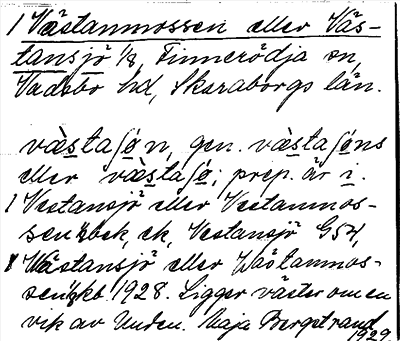 1 Västanmossen eller Väs-
tansjö 1/8, Finnerödja sn,
Vadsbo hd, Skaraborgs län.
væ̀staʃǿn, gen. væ̀staʃǿns
eller væ̀staʃǿ; prep. är i.
1 Vestansjö eller Vestanmos-
sen ek, Vestansjö G54,
Västansjö eller Västanmos-
sen 1928. Ligger väster om en
vik av Unden. Maja Bergstrand
1929.